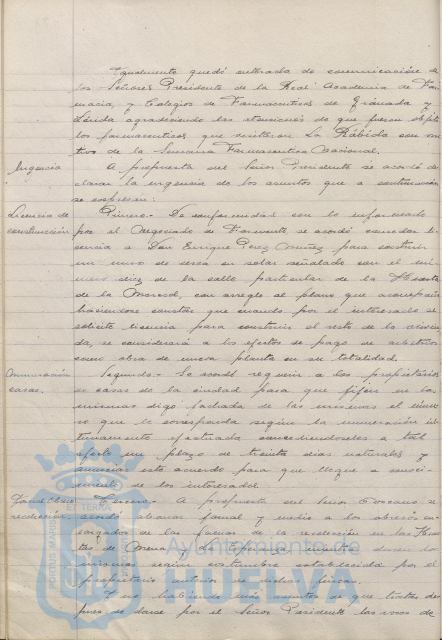 Igualmente quedó enterada de comunicación de
los Señores Presidente de la Real Academia de Far
macia, y Colegios de Farmacéuticos de Granada y
Lérida agradeciendo las atenciones de que fueron objeto
los farmaceuticos que visitaron La Rábida con mo
tivo de la Semana Farmaceutica Nacional.
Urgencia
A propuesta del Señor Presidente se acordó de
clarar la urgencia de los asuntos que a continuación
se expresan:
Licencia de construcción
Primero.- De conformidad con lo informado
por el Negociado de Fomento se acordó conceder li
cencia a Don Enrique Perez Muñoz para construir
un muro de cerca en solar señalado con el nú
mero diez de la calle particular de la Huerta
de la Merced, con arreglo al plano que acompaña
haciendose constar que cuando por el interesado se
solicite licencia para construir el resto de la vivien
da, se considerará a los efectos de pago de arbitrios
como obra de nueva planta en su totalidad.
Numeración casas.
Segundo.- Se acordó requerir a los propietarios
de casas de la ciudad para que fijen en las
mismas digo fachada de las mismas el núme
ro que le corresponda según la numeración úl
timamente efectuada concediendoseles a tal
efecto un plazo de treinta dias naturales y
anunciar este acuerdo para que llegue a conoci-
miento de los interesados.
Tercero.- A propuesta del Señor
acordó abonar jornal y medio a los obreros en
cargados de las faenas de la recolección en las Huer
tas de Mena y duren las
mismas según costumbre establecida por el
propietario anterior de dichas fincas.
Y no habiendo más asuntos de que tratar des
pues de darse por el Señor Presidente las voces de
PORTUS MARIS ET TERRAE
Ayuntamiento de
HUELVA